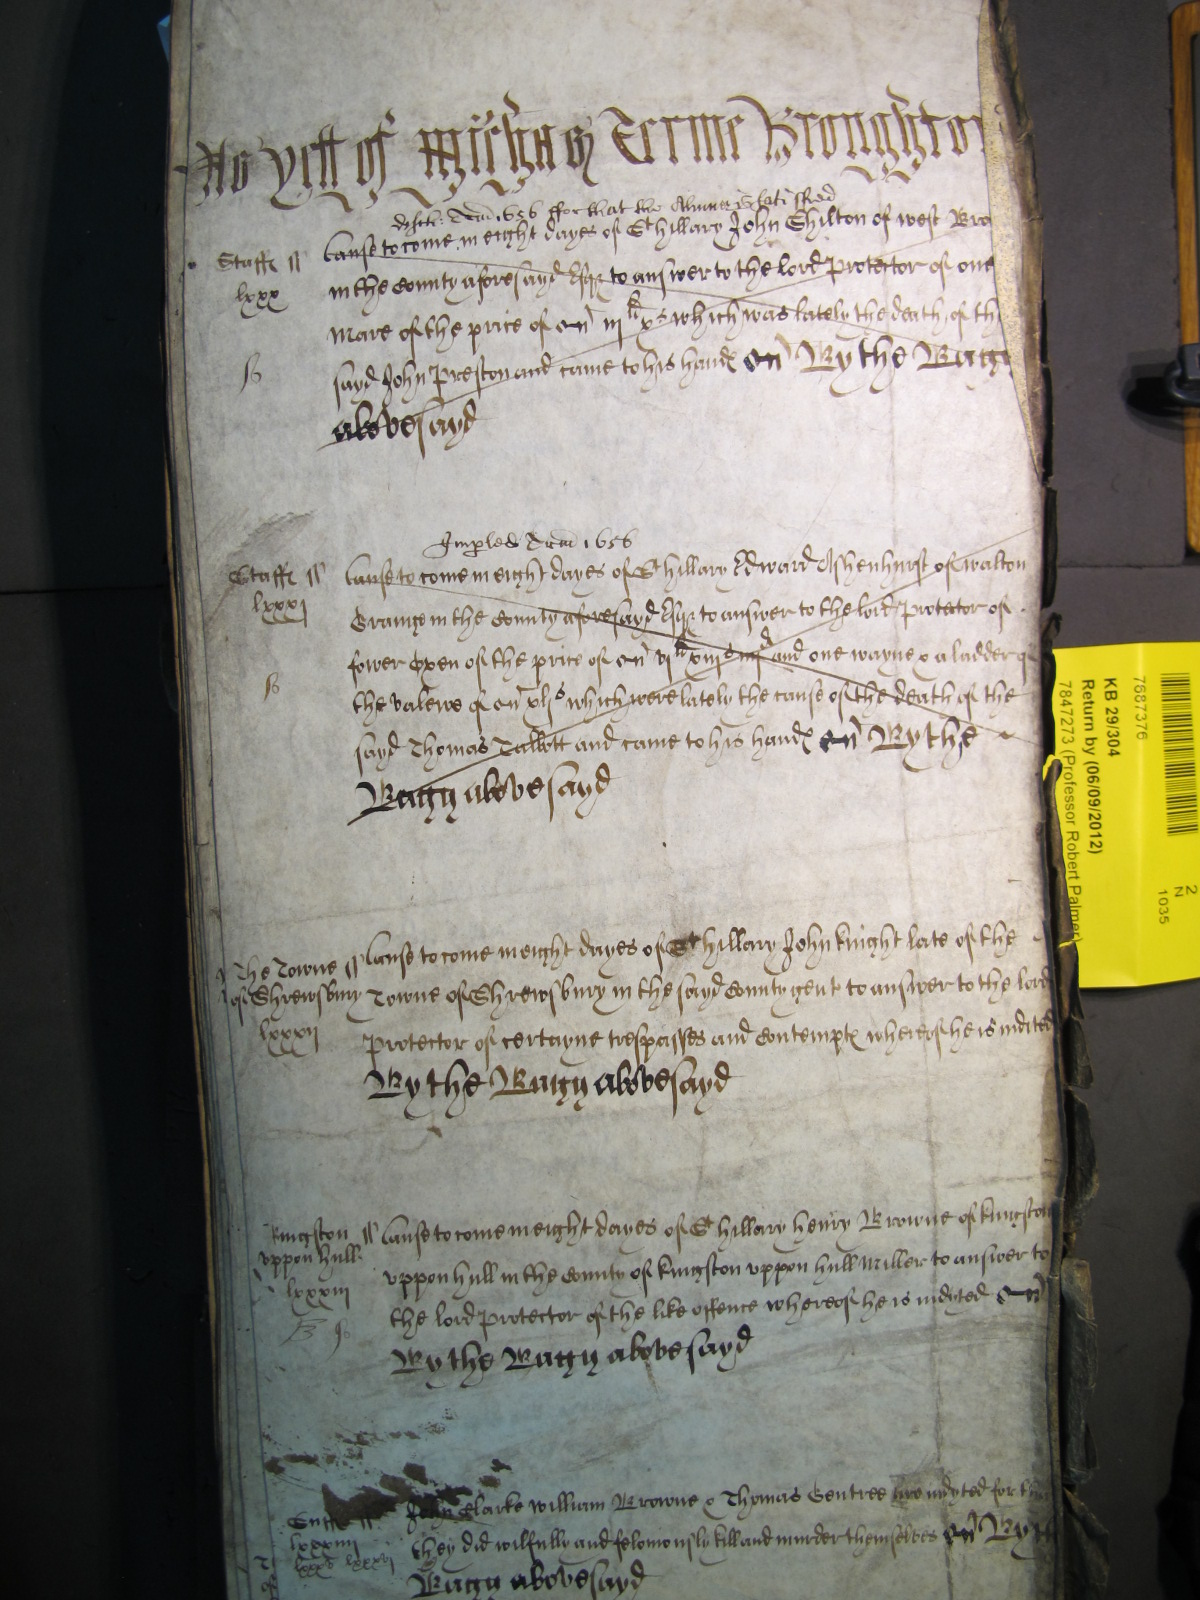 As Yett of Mich'as Terme Broughton
Trin 1656 ffor that the Almner is satisfied
Staff ss Cause to come in eight dayes of St hillary John Shilton of west Bro
lxxx in the County aforesayd Esqr to answer to the lord protector of one
mare of the price of iijli xs which was lately the death of th
B sayd John Preston and came to his hands &c By the Bagg
abovesayd
Impled Trin 1656
Staff ss Cause to come in eight dayes of St hillary Edward Ashenhurst of walton
lxxxj Grainge in the County aforesayd Esqr to answer to the lord protector of
fower Oxen of the price of and one wayne & a ladder
B the valewe of xls which were lately the cause of the death of the
sayd Thomas Talbott and came to his hands &c By the
Bagg abovesayd
The Towne ss Cause to come in eight dayes of St hillary John knight late of the
of Shrewsbury Towne of Shrewsbury in the sayd County gent to answer to the lord
lxxxij protector of certayne trespasses and Contempts whereof he is indited
By the Bagg abovesayd
Kingston ss Cause to come in eight dayes of St hillary henry Browne of kingston
uppon hull uppon hull in the County of kingston uppon hull Miller to answer to
lxxxiij the lord protector of the like offence whereof he is indyted &c
By the Bagg abovesayd
Suff ss John Clarke william Browne & Thomas Gentree are indyted for that
lxxxiiij they did wilfully and feloniously kill and murder themselves &c By the
lxxxv lxxxvj
Bagg abovesayd
7687376
KB 29/304
Return by (06/09/2012)
7847273 (Professor Robert Palmer)
2
N
1035